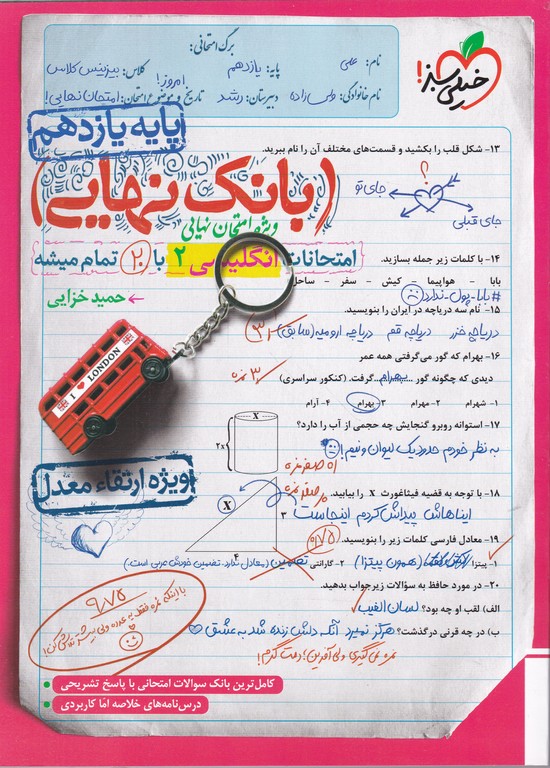 برگ امتحانی:
نام: علی
پایه: یازدهم
کلاس: بیزینس کلاس
نام خانوادگی: ولی‌زاده
دبیرستان: رشد
تاریخ و موضوع امتحان: امروز! امتحان نهایی!
خیلی سبز!
پایه یازدهم
(بانک نهایی)
ویژه امتحان نهایی
امتحانات انگلیسی ۲ با ۲۰ تمام میشه
حمید خزایی
I ❤ LONDON
ویژه ارتقاء معدل
۱۳- شکل قلب را بکشید و قسمت‌های مختلف آن را نام ببرید.
؟
جای تو
جای قبلی
۱۴- با کلمات زیر جمله بسازید.
بابا - هواپیما - کیش - سفر - ساحل
#بابا-پول-ندارد
۱۵- نام سه دریاچه در ایران را بنویسید.
دریاچه خزر دریاچه قم دریاچه ارومیه (سابق)
۱۶- بهرام که گور می‌گرفتی همه عمر
دیدی که چگونه گور ...بهرام... گرفت. (کنکور سراسری)
۳ نمره
۱- شهرام ۲- مهرام ۳- بهرام ۴- آرام
۱۷- استوانه روبرو گنجایش چه حجمی از آب را دارد؟
x
2x
به نظر خودم حدود یک لیوان و نیم!
۱۸- با توجه به قضیه فیثاغورث x را بیابید.
x
۳
۴
ایناهاش پیداش کردم اینجاست
۱۹- معادل فارسی کلمات زیر را بنویسید.
۱- پیتزا (همون پیتزا) ۲- گارانتی تضمین (معادل ندارد. تضمین خودش عربی است.)
۲۰- در مورد حافظ به سؤالات زیر جواب بدهید.
الف) لقب او چه بود؟ لسان الغیب
ب) در چه قرنی درگذشت؟ هرگز نمیرد آنکه دلش زنده شد به عشق
نمره نمی‌گیری ولی آفرین! دمت گرم!
۹/۷۵
کامل‌ترین بانک سوالات امتحانی با پاسخ تشریحی
درس‌نامه‌های خلاصه امّا کاربردی